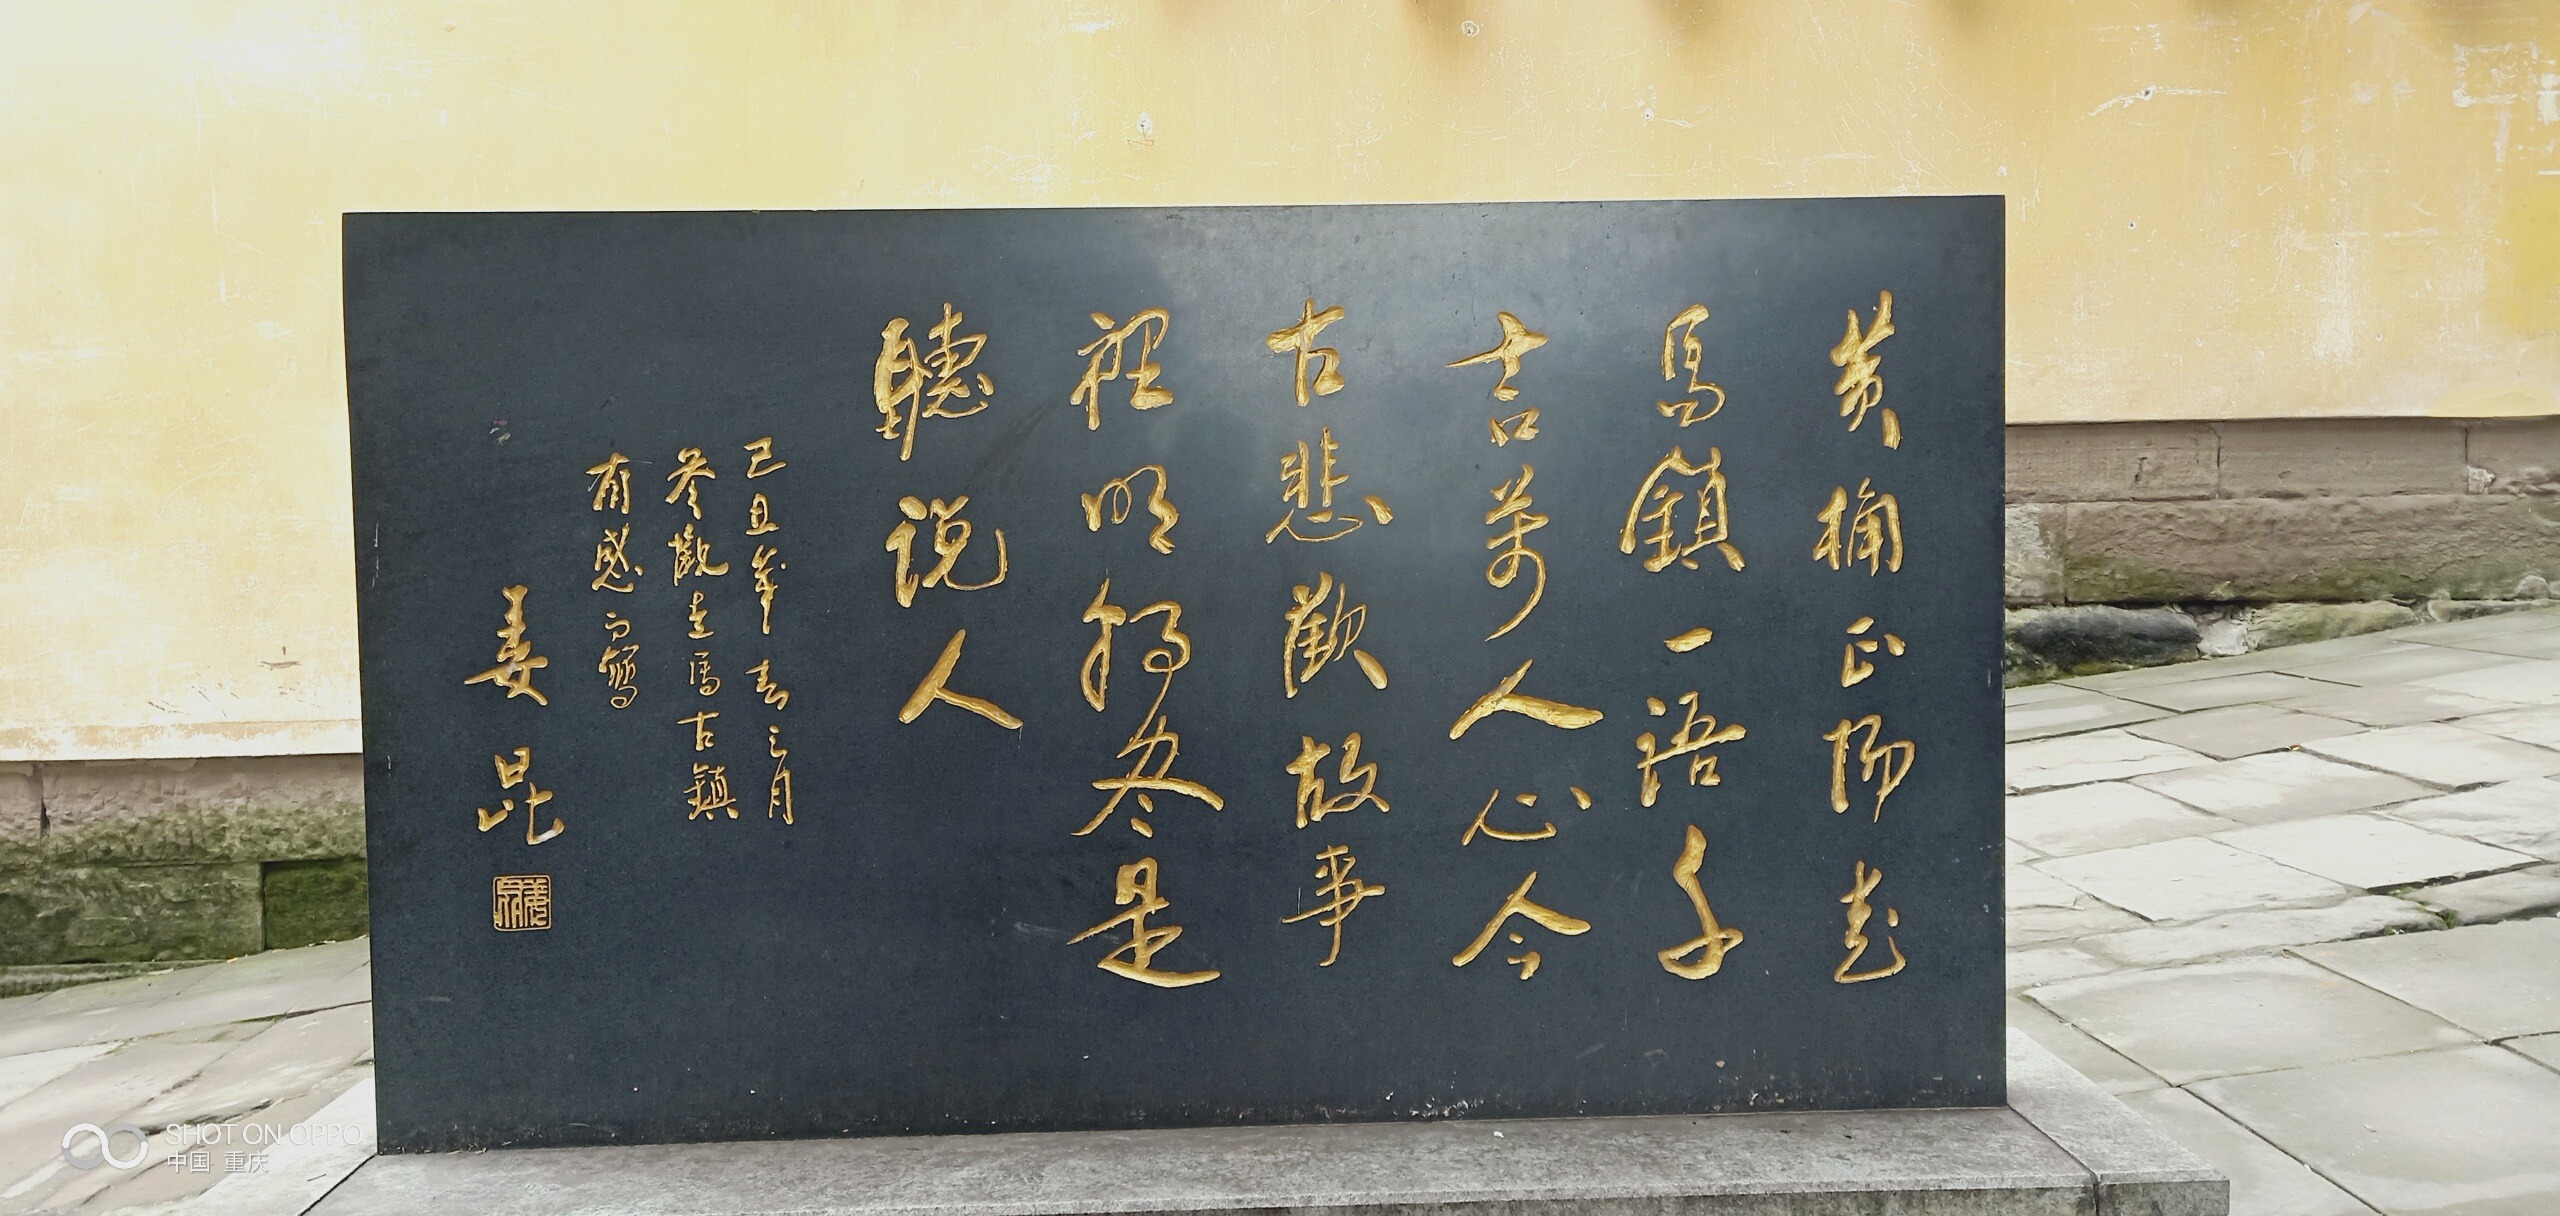 黄桷正陽走
馬鎮一語千
言萬人心今
古悲歡故事
裡明朝尽是
聽说人
己丑年春三月
參觀走馬古鎮
有感而寫
姜昆
SHOT ON OPPO
中国 重庆